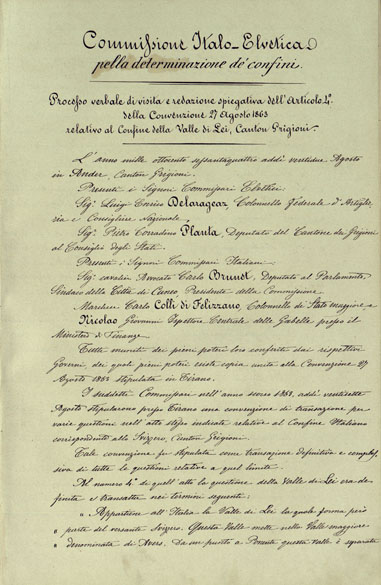 Commissione Italo-Elvetica
pella determinazione de' confini.
Processo verbale di visita e redazione spiegativa dell'Articolo 4º
della Convenzione 27 Agosto 1863
relativo al Confine della Valle di Lei, Canton Grigioni.
L'anno mille ottocento sessantaquattro addì ventidue Agosto
in Ander, Canton Grigioni.
Presenti i Signori Commissari Elvetici
Sig. Luigi Enrico Delarageaz, Colonnello Federale d'Artiglie,
ria e Consigliere Nazionale
Sig. Pietro Corradino Planta, Deputato del Cantone dei Grigioni
al Consiglio degli Stati.
Presenti i Signori Commissari Italiani
Sig. cavalier Amato Carlo Brunet, Deputato al Parlamento,
Sindaco della Città di Cuneo, Presidente della Commissione
Marchese Carlo Colli di Felizzano, Colonnello di Stato maggiore e
Nicolao Giovanni Ispettore Centrale delle Gabelle presso il
Ministero di Finanze
Tutti muniti dei pieni poteri loro conferti dai rispettivi
Governi dei quali pieni poteri esiste copia unita alla Convenzione 27
Agosto 1863 stipulata in Tirano.
I suddetti Commissari nell'anno scorso 1863, addì ventisette
Agosto stipularono presso Tirano una convenzione di transazione per
varie questioni nell'atto stesso indicate relative al Confine Italiano
corrispondente alla Svizzera, Canton Grigioni.
Tale convenzione fu stipulata come transazione definitiva e comples,
siva di tutte le questioni relative a quel limite.
Al numero 4º di quell'atto la questione della Valle di Lei era de,
finita e transatta nei termini seguenti:
" Appartiene all'Italia la Valle di Lei la quale forma però
" parte del versante Svizzero. Questa Valle mette nella Valle maggiore
" denominata di Avers. Da un punto a Ponente questa valle è separata